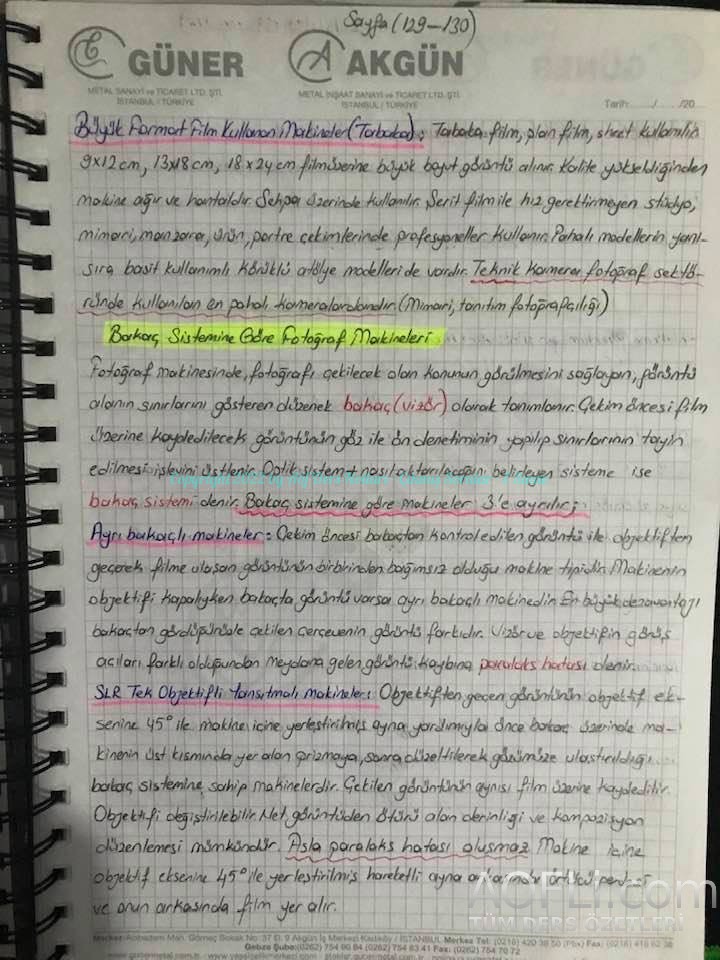 Sayfa (129-130)
GÜNER
AKGÜN
METAL SANAYİ ve TİCARET LTD. ŞTİ.
İSTANBUL / TÜRKİYE
METAL İNŞAAT SANAYİ ve TİCARET LTD. ŞTİ.
İSTANBUL / TÜRKİYE
Tarih:....../....../20.....
Büyük Format Film Kullanan Makineler (Tabaka): Tabaka film, plan film, sheet kullanılır
9x12 cm, 13x18 cm, 18x24 cm film üzerine büyük boyut görüntü alınır. Kalite yükseldiğinden
makine ağır ve hantaldır. Sehpa üzerinde kullanılır. Şerit film ile hız gerektirmeyen stüdyo,
mimari, manzara, ürün, portre çekimlerinde profesyoneller kullanır. Pahalı modellerin yanı-
sıra basit kullanımlı körüklü atölye modelleri de vardır. Teknik kamera fotoğraf sektö-
ründe kullanılan en pahalı kameralardandır. (Mimari, tanıtım fotoğrafçılığı)
Bakaç Sistemine Göre Fotoğraf Makineleri
Fotoğraf makinesinde, fotoğrafı çekilecek olan konunun görülmesini sağlayan, görüntü
alanın sınırlarını gösteren düzenek bakaç (vizör) olarak tanımlanır. Çekim öncesi film
üzerine kaydedilecek görüntünün göz ile ön denetiminin yapılıp sınırlarının tayin
edilmesi işlevini üstlenir. Optik sistem + nasıl aktarılacağını belirleyen sisteme ise
bakaç sistemi denir. Bakaç sistemine göre makineler 3'e ayrılır;
Ayrı bakaçlı makineler: Çekim öncesi bakaçtan kontrol edilen görüntü ile objektiften
geçerek filme ulaşan görüntünün birbirinden bağımsız olduğu makine tipidir. Makinenin
objektifi kapalıyken bakaçta görüntü varsa ayrı bakaçlı makinedir. En büyük dezavantajı
bakaçtan gördüğünüzle çekilen çerçevenin görüntü farkıdır. Vizör ve objektifin görüş
açıları farklı olduğundan meydana gelen görüntü kaybına paralaks hatası denir.
SLR Tek Objektifli Yansıtmalı makineler: Objektiften geçen görüntünün objektif ek-
senine 45° ile makine içine yerleştirilmiş ayna yardımıyla önce bakaç üzerinde ma-
kinenin üst kısmında yer alan prizmaya, sonra düzeltilerek gözümüze ulaştırıldığı
bakaç sistemine sahip makinelerdir. Çekilen görüntünün aynısı film üzerine kaydedilir.
Objektifi değiştirilebilir. Net görüntüden ötürü alan derinliği ve kompozisyon
düzenlemesi mümkündür. Asla paralaks hatası oluşmaz. Makine içine
objektif eksenine 45° ile yerleştirilmiş hareketli ayna arkasında örtücü perdesi
ve onun arkasında film yer alır.
AOFLI.com
TÜM DERS ÖZETLERİ